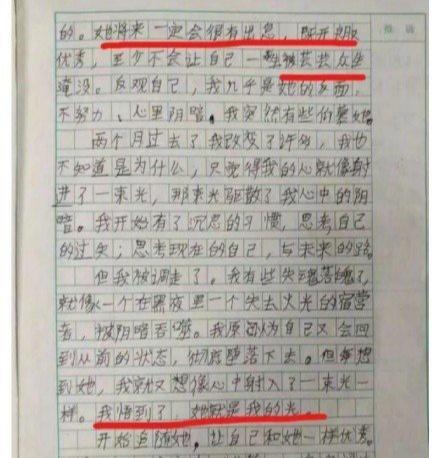 的。她将来一定会很有出息，既开朗
优秀，至少不会让自己一生被芸芸众生
淹没。反观自己，我几乎是她的反面，
不努力、心里阴暗。我突然有些仰慕她。
两个月过去了我改变了许多，我也
不知道是为什么，只觉得我的心就像射
进了一束光，那束光驱散了我心中的阴
暗。我开始有了沉思的习惯，思考自己
的过失；思考现在的自己，与未来的路。
但我被调走了。我有些失魂落魄了，
就像一个在黑夜里一个失去火光的宿营
者，被阴暗吞噬。我原以为自己又会回
到从前的状态，彻底堕落下去。但每想
到她，我就又想像心中射入了一束光一
样。我悟到了，她就是我的光。
开始追随她，让自己和她一样优秀。